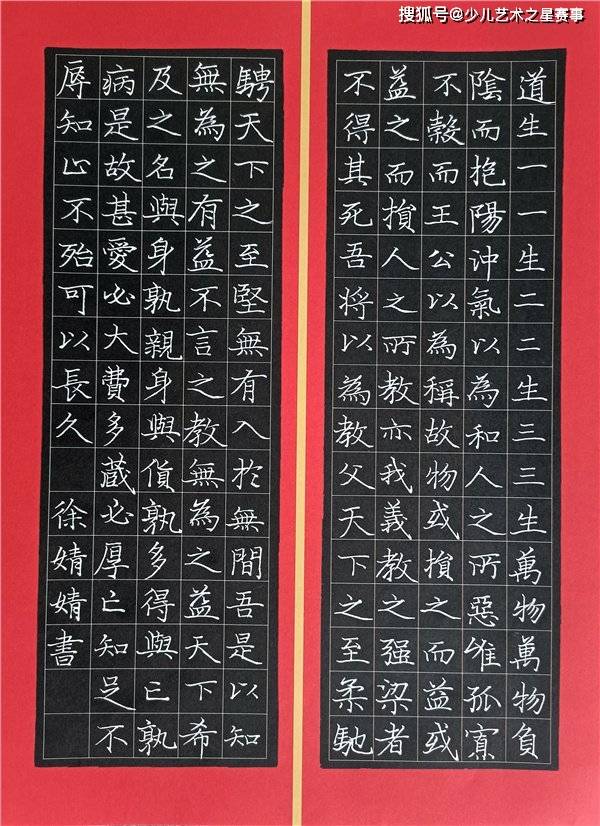 搜狐号@少儿艺术之星赛事
道生一一生二二生三三生萬物萬物負
陰而抱陽沖氣以為和人之所惡唯孤寡
不穀而王公以為稱故物或損之而益或
益之而損人之所教亦我義教之强梁者
不得其死吾將以為教父天下之至柔馳
騁天下之至堅無有入於無間吾是以知
無為之有益不言之教無為之益天下希
及之名與身孰親身與貨孰多得與亡孰
病是故甚愛必大費多藏必厚亡知足不
辱知止不殆可以長久 徐婧婧書